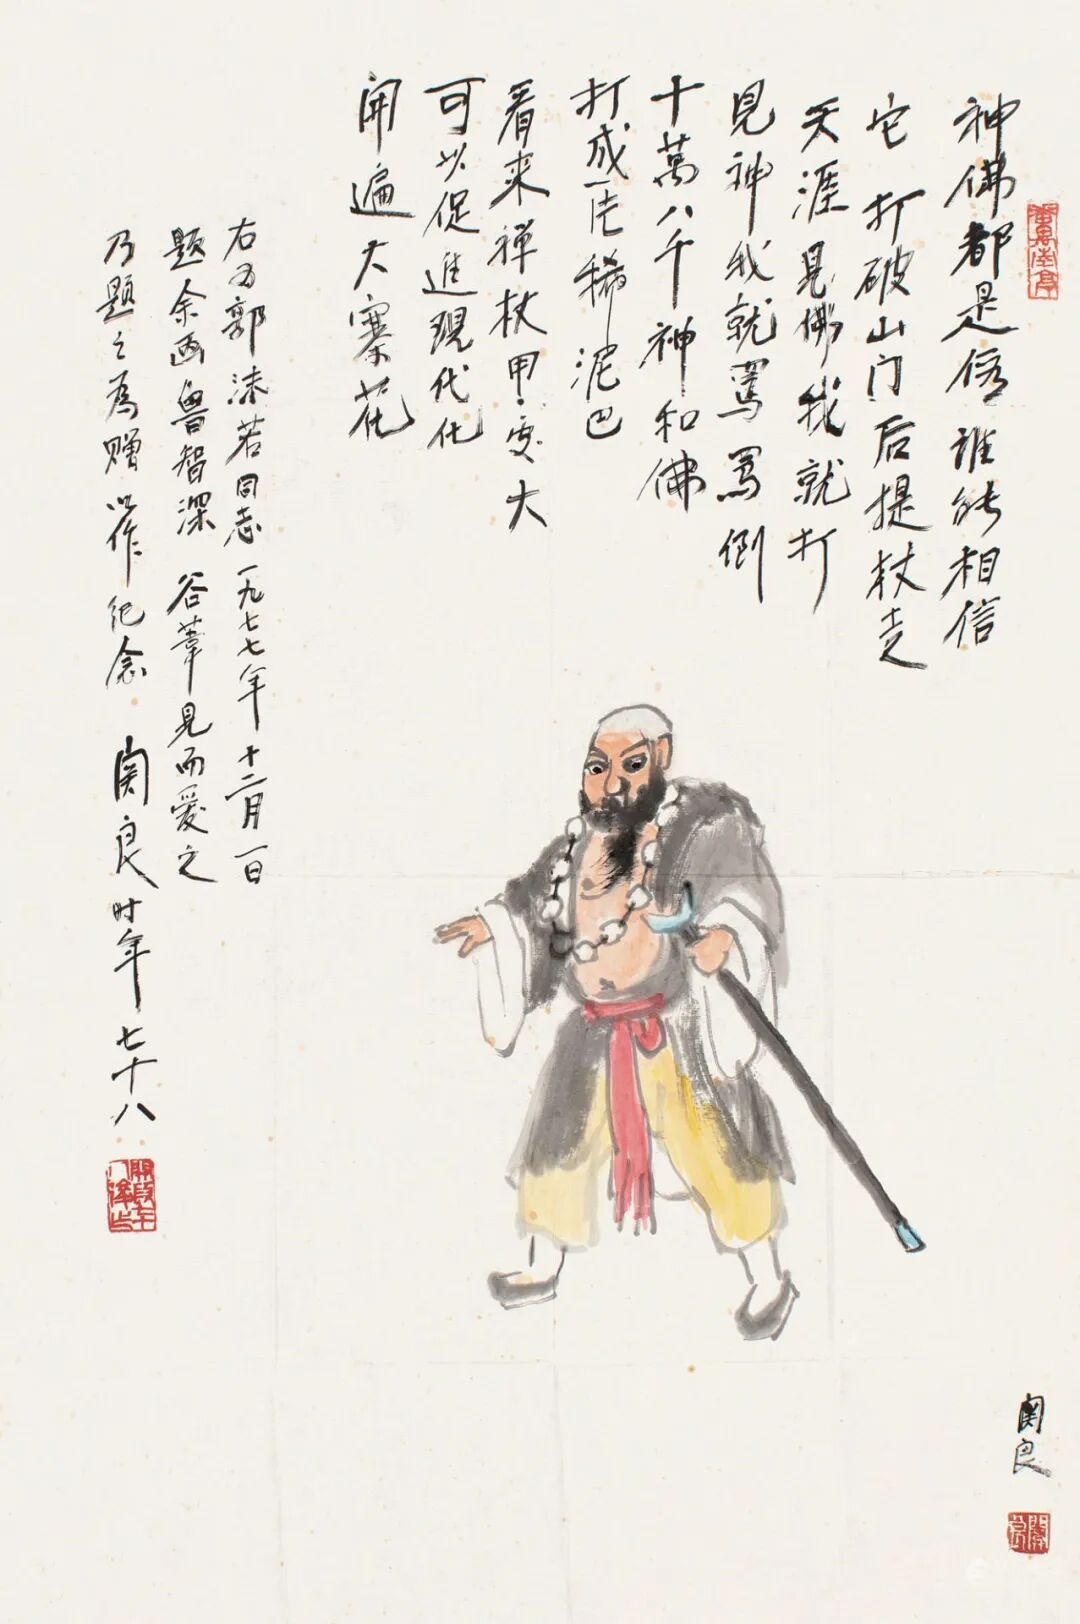 神佛都是假谁能相信
它 打破山门后提杖走
天涯見佛我就打
見神我就罵 罵倒
十萬八千神和佛
打成一片稀泥巴
看来禅杖用处大
可以促進現代化
開遍大寨花
右为郭沫若同志一九七七年十二月一日
题余画魯智深 谷葦見而爱之
乃题之為赠以作纪念 関良时年七十八
関良